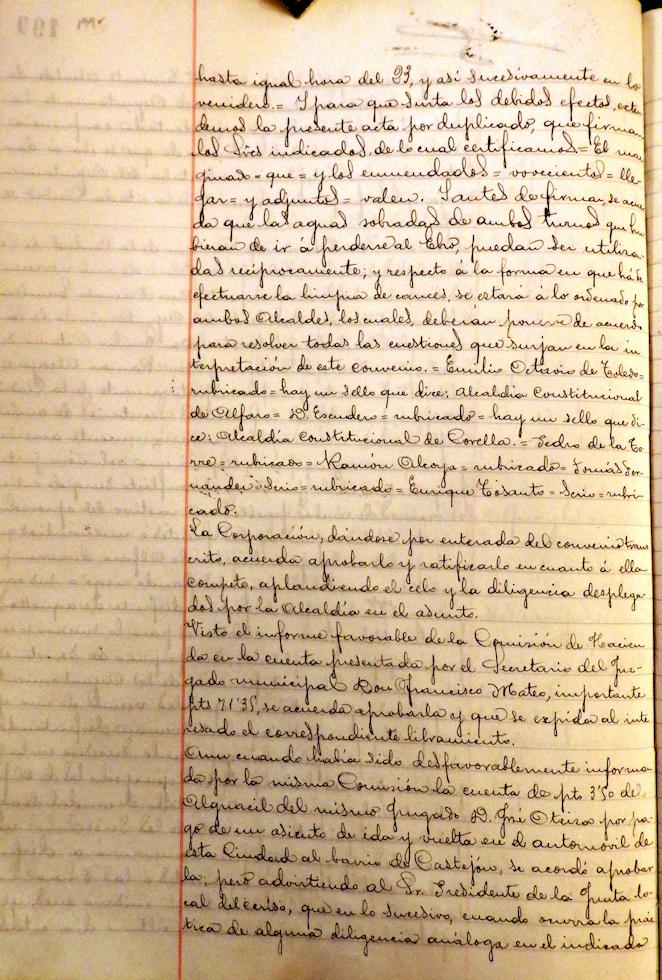 hasta igual hora del 23, y así sucesivamente en lo
venidero. = Y para que surta los debidos efectos, exten
demos la presente acta por duplicado, que firman
los Sres indicados, de lo cual certificamos = El mar
ginado = que = y los enmendados = novecientos = lle
gar = y adjuntos = valen. Y antes de firmar, se acuer
da que las aguas sobradas de ambos turnos que hu
bieran de ir á perderse al Ebro, puedan ser utiliza
das recíprocamente; y respecto á la forma en que há de
efectuarse la limpia de cauces, se estará á lo ordenado por
ambos Alcaldes, los cuales, deberán ponerse de acuerdo
para resolver todas las cuestiones que surjan en la in
terpretación de este convenio. = Emilio Octavio de Toledo =
rubricado = hay un sello que dice; Alcaldía Constitucional
de Alfaro = D. Escudero = rubricado = hay un sello que di
ce; Alcaldía Constitucional de Corella. = Pedro de la To
rre = rubricado = Ramón Alcoya = rubricado = Tomás Fer
nández: Serio = rubricado = Enrique Tosantos = Serio = rubri
cado.
La Corporación, dándose por enterada del convenio trans
crito, acuerda aprobarlo y ratificarlo en cuanto á ella
compete, aplaudiendo el celo y la diligencia desplega
dos por la Alcaldía en el asunto.
Visto el informe favorable de la Comisión de Hacien
da en la cuenta presentada por el Secretario del Juz-
gado municipal Don Francisco Mateo, importante
pts 71'35, se acuerda aprobarla y que se expida al inte
resado el correspondiente libramiento.
Aun cuando había sido desfavorablemente informa
da por la misma Comisión la cuenta de pts 3'50 del
Alguacil del mismo Juzgado D. José Oteiza por pa
go de un asiento de ida y vuelta en el automóvil de
esta Ciudad al barrio de Castejón, se acordó aprobar
la; pero advirtiendo al Sr. Presidente de la Junta lo-
cal del censo, que en lo sucesivo, cuando ocurra la prác
tica de alguna diligencia análoga en el indicado